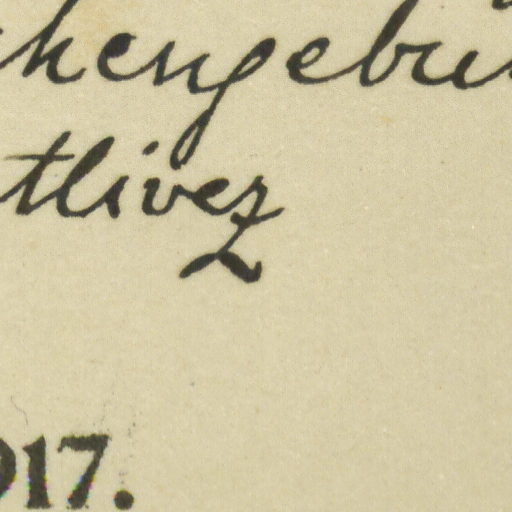 chengebü
tlivez
917.